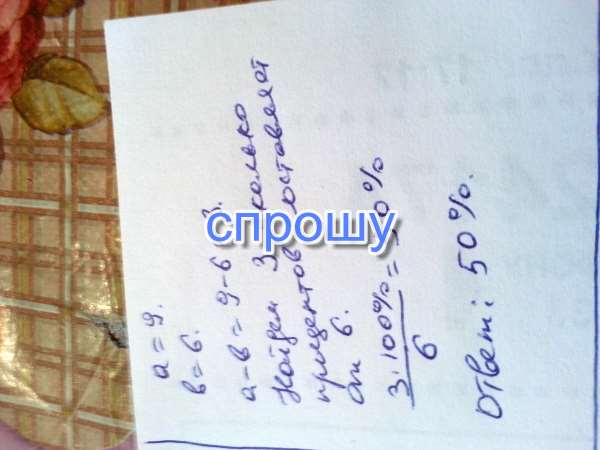 a = 9.
в = 6.
a - в = 9 - 6 3.
Найдем 3 сколько
процентов составляет
от 6.
3 · 100% = 0%
6
Ответ: 50%.
спрошу